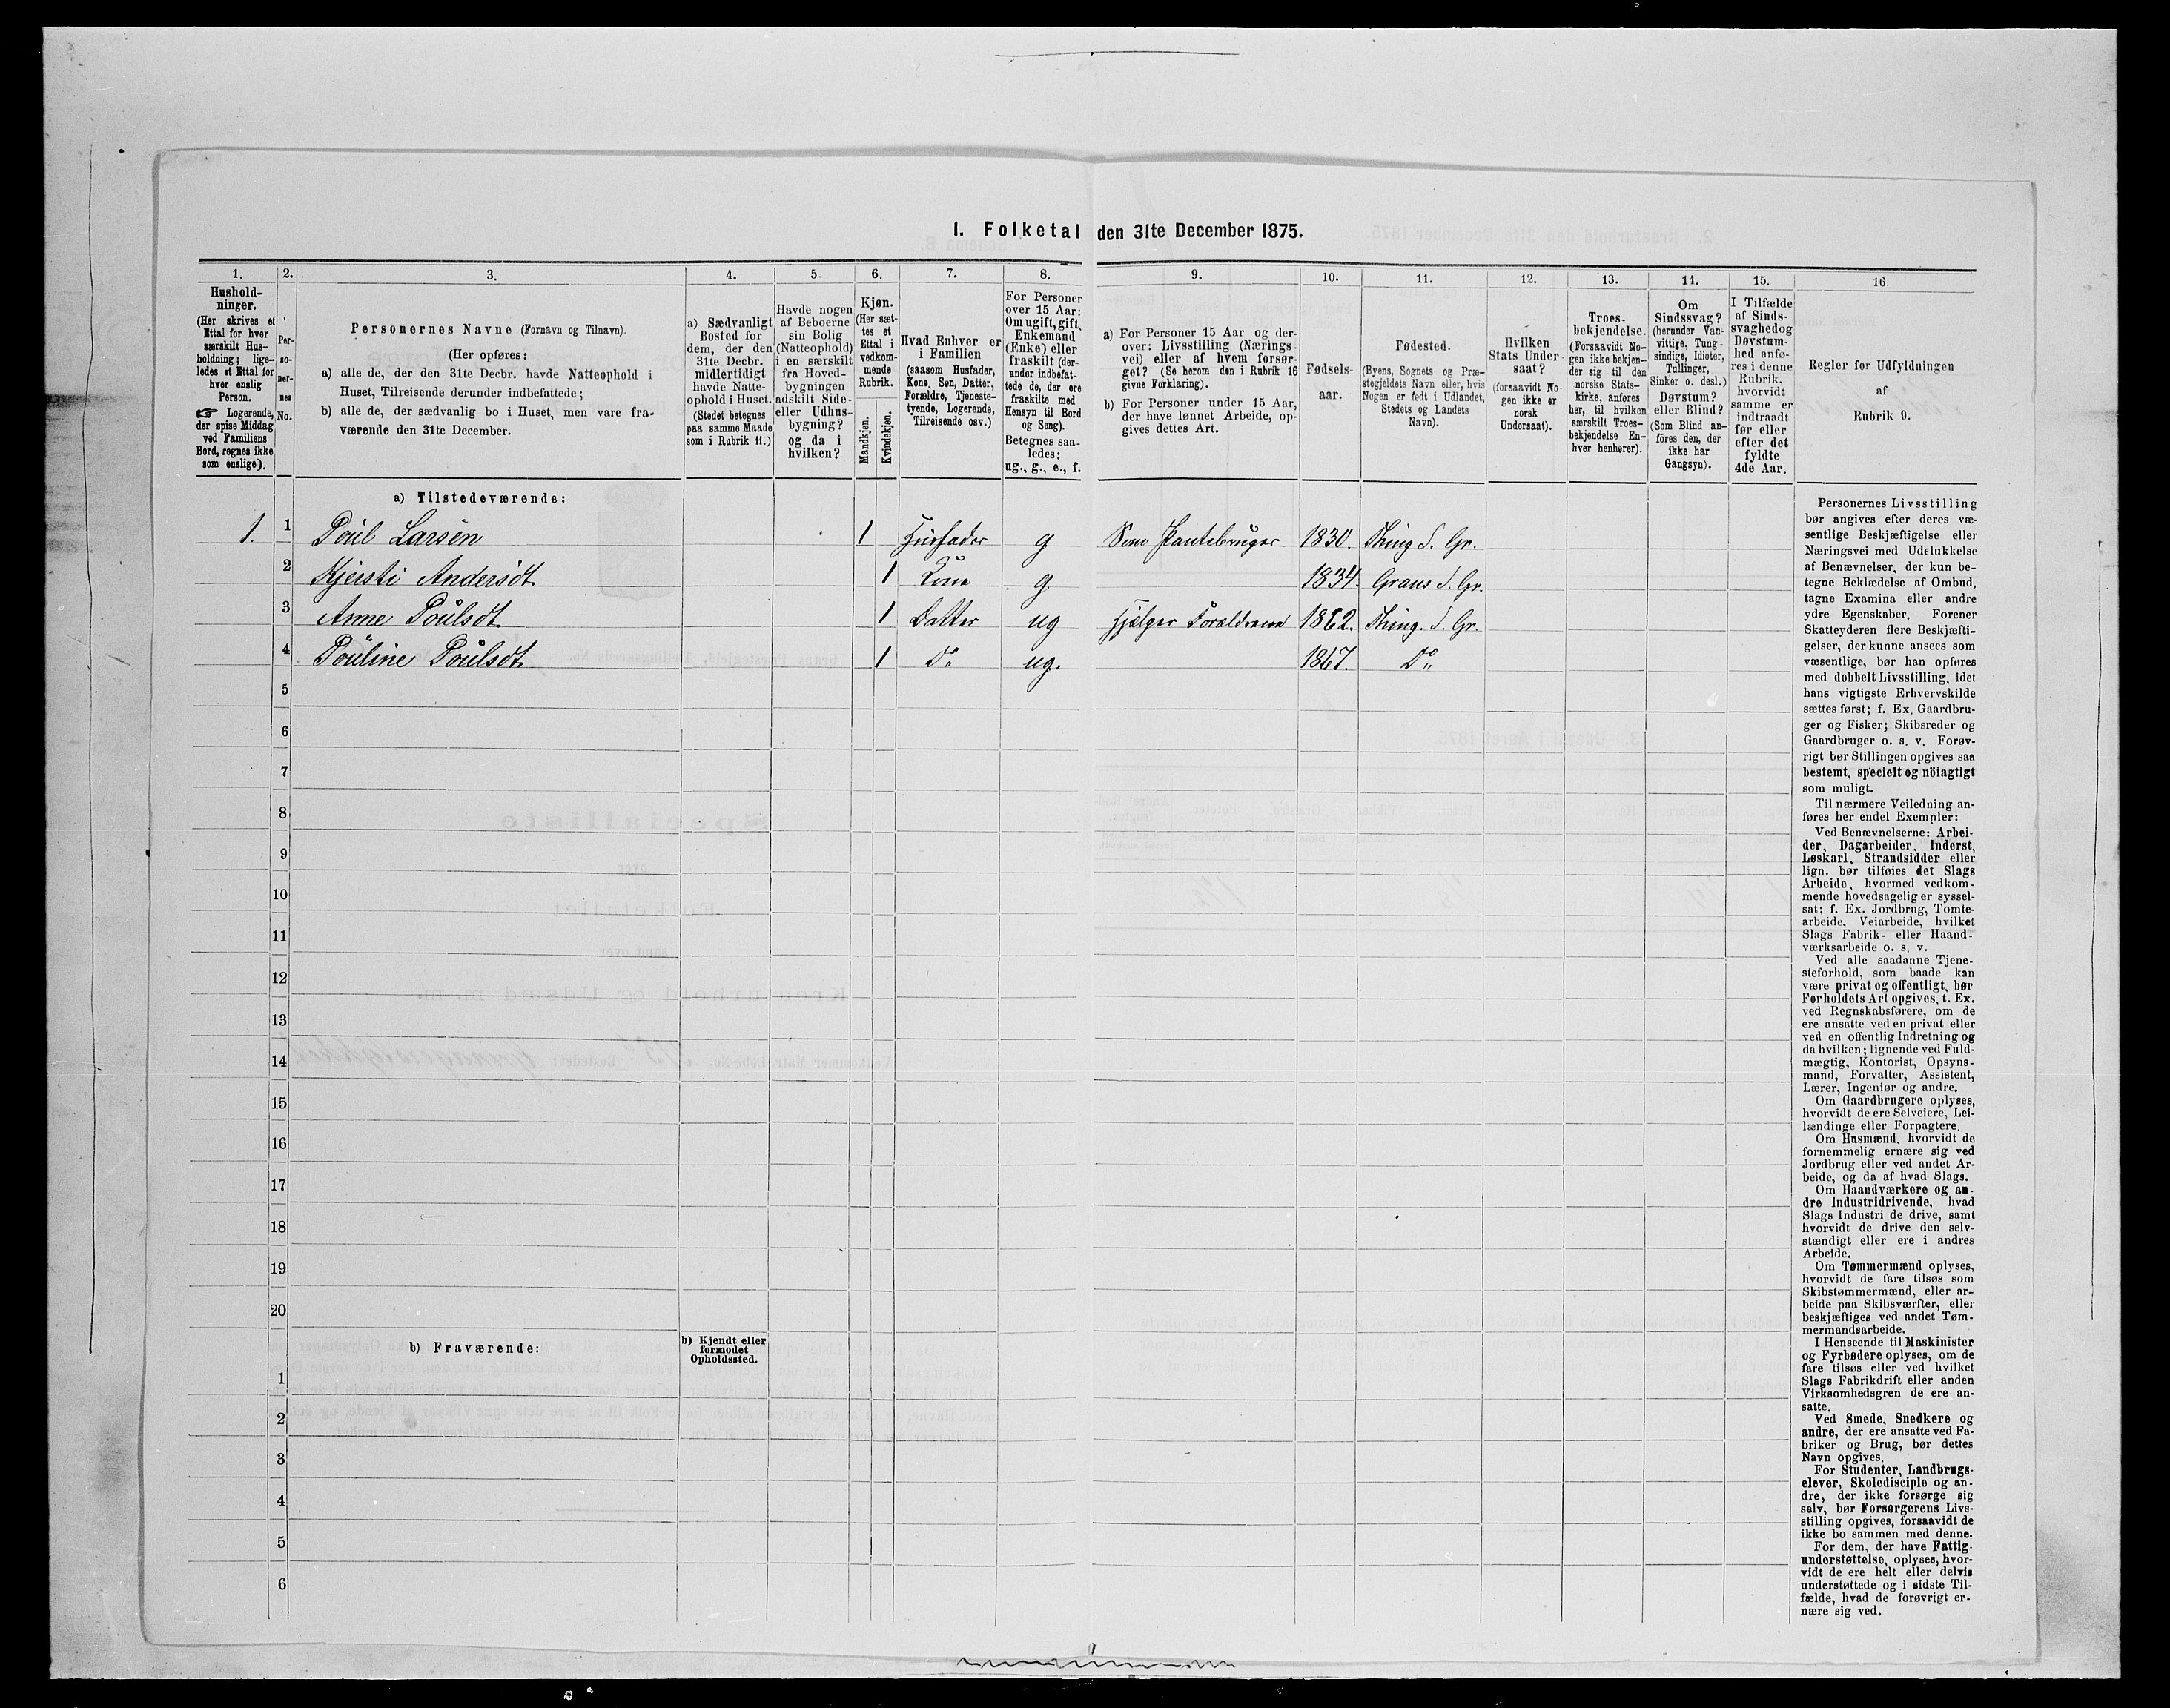 I. Folketal den 31te December 1875.
1. 2. 3. 4. 5. 6. 7. 8. 9. 10. 11. 12. 13. 14. 15. 16.
Hushold-
ninger.
(Her skrives et
Ettal for hver
særskilt Hus-
holdning; lige-
ledes et Ettal for
hver enslig
Person.
☞ Logerende,
der spise Middag
ved Familiens
Bord, regnes ikke
som enslige).
Per-
so-
ner-
nes
No.
Personernes Navne (Fornavn og Tilnavn).
(Her opføres:
a) alle de, der den 31te Decbr. havde Natteophold i
Huset, Tilreisende derunder indbefattede;
b) alle de, der sædvanlig bo i Huset, men vare fra-
værende den 31te December.
a) Sædvanligt
Bosted for
dem, der den
31te Decbr.
midlertidigt
havde Natte-
ophold i Huset.
(Stedet betegnes
paa samme Maade
som i Rubrik 11.)
Havde nogen
af Beboerne
sin Bolig
(Natteophold)
i en særskilt
fra Hoved-
bygningen
adskilt Side-
eller Udhus-
bygning?
og da i
hvilken?
Kjøn.
(Her sæt-
tes et
Ettal i
vedkom-
mende
Rubrik.
Mandkjøn.
Kvindekjøn.
Hvad Enhver er
i Familien
(saasom Husfader,
Kone, Søn, Datter,
Forældre, Tjeneste-
tyende, Logerende,
Tilreisende osv.)
For Personer
over 15 Aar:
Om ugift, gift,
Enkemand
(Enke) eller
fraskilt (der-
under indbefat-
tede de, der ere
fraskilte med
Hensyn til Bord
og Seng).
Betegnes saa-
ledes:
ug., g., e., f.
a) For Personer 15 Aar og der-
over: Livsstilling (Nærings-
vei) eller af hvem forsør-
get? (Se herom den i Rubrik 16
givne Forklaring).
b) For Personer under 15 Aar,
der have lønnet Arbeide, op-
gives dettes Art.
Fødsels-
aar.
Fødested.
(Byens, Sognets og Præ-
stegjeldets Navn eller, hvis
Nogen er født i Udlandet,
Stedets og Landets
Navn).
Hvilken
Stats Under-
saat?
(forsaavidt No-
gen ikke er
norsk
Undersaat).
Troes-
bekjendelse.
(Forsaavidt No-
gen ikke bekjen-
der sig til den
norske Stats-
kirke, anføres
her, til hvilken
særskilt Troes-
bekjendelse En-
hver henhører).
Om
Sindssvag?
(herunder Van-
vittige, Tung-
sindige, Idioter,
Tullinger,
Sinker o. desl.)
Døvstum?
eller Blind?
(Som Blind an-
føres den, der
ikke har
Gangsyn).
I Tilfælde
af Sinds-
svaghedog
Døvstum-
hed anfø-
res i denne
Rubrik,
hvorvidt
samme er
indtraadt
før eller
efter det
fyldte
4de Aar.
Regler for Udfyldningen
af
Rubrik 9.
a) Tilstedeværende:
1. 1 Poul Larsen 1 Husfader g Som Pantebruger 1830. Thing S. Gr.
2 Kjersti Andersdt. 1 Kone g 1834. Grans S. Gr.
3 Anne Poulsdt. 1 Datter ug Hjælper Forældrene 1862. Thing. S. Gr.
4 Pouline Poulsdt. 1 Do ug. 1867. Do
5
6
7
8
9
10
11
12
13
14
15
16
17
18
19
20
b) Fraværende:
b) Kjendt eller
formodet
Opholdssted.
1
2
3
4
5
6
Personernes Livsstilling
bør angives efter deres væ-
sentlige Beskjæftigelse eller
Næringsvei med Udelukkelse
af Benævnelser, der kun be-
tegne Beklædelse af Ombud,
tagne Examina eller andre
ydre Egenskaber. Forener
Skatteyderen flere Beskjæfti-
gelser, der kunne ansees som
væsentlige, bør han opføres
med dobbelt Livsstilling, idet
hans vigtigste Erhvervskilde
sættes først; f. Ex. Gaardbru-
ger og Fisker; Skibsreder og
Gaardbruger o. s. v. Forøv-
rigt bør Stillingen opgives saa
bestemt, specielt og nöiagtigt
som muligt.
Til nærmere Veiledning an-
føres her endel Exempler:
Ved Benævnelserne: Arbei-
der, Dagarbeider, Inderst,
Løskarl, Strandsidder eller
lign. bør tilføies det Slags
Arbeide, hvormed vedkom-
mende hovedsagelig er syssel-
sat; f. Ex. Jordbrug, Tomte-
arbeide, Veiarbeide, hvilket
Slags Fabrik- eller Haand-
værksarbeide o. s. v.
Ved alle saadanne Tjene-
steforhold, som baade kan
være privat og offentligt, bør
Forholdets Art opgives, t. Ex.
ved Regnskabsførere, om de
ere ansatte ved en privat eller
ved en offentlig Indretning og
da hvilken; lignende ved Fuld-
mægtig, Kontorist, Opsyns-
mand, Forvalter, Assistent,
Lærer, Ingeniør og andre.
Om Gaardbrugere oplyses,
hvorvidt de ere Selveiere, Lei-
lændinge eller Forpagtere.
Om Husmænd, hvorvidt de
fornemmelig ernære sig ved
Jordbrug eller ved andet Ar-
beide, og da af hvad Slags.
Om Haandværkere og an-
dre Industridrivende, hvad
Slags Industri de drive, samt
hvorvidt de drive den selv-
stændigt eller ere i andres
Arbeide.
Om Tømmermænd oplyses,
hvorvidt de fare tilsøs som
Skibstømmermænd, eller ar-
beide paa Skibsværfter, eller
beskjæftiges ved andet Tøm-
mermandsarbeide.
I Henseende til Maskinister
og Fyrbødere oplyses, om de
fare tilsøs eller ved hvilket
Slags Fabrikdrift eller anden
Virksomhedsgren de ere an-
satte.
Ved Smede, Snedkere og
andre, der ere ansatte ved Fa-
briker og Brug, bør dettes
Navn opgives.
For Studenter, Landbrugs-
elever, Skoledisciple og an-
dre, der ikke forsørge sig
selv, bør Forsørgerens Livs-
stilling opgives, forsaavidt de
ikke bo sammen med denne.
For dem, der have Fattig-
understøttelse, oplyses, hvor-
vidt de ere helt eller delvis
understøttede og i sidste Til-
fælde, hvad de forøvrigt er-
nære sig ved.